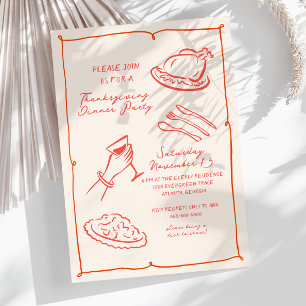 PLEASE JOIN
US FOR A
Thanksgiving
Dinner Party
Saturday
November 13
6PM AT THE EVERLY RESIDENCE
1650 EVERGREEN TRACE
ATLANTA, GEORGIA
RSVP REGRETS ONLY TO ANA
555-555-5555
please bring a
dish to share!